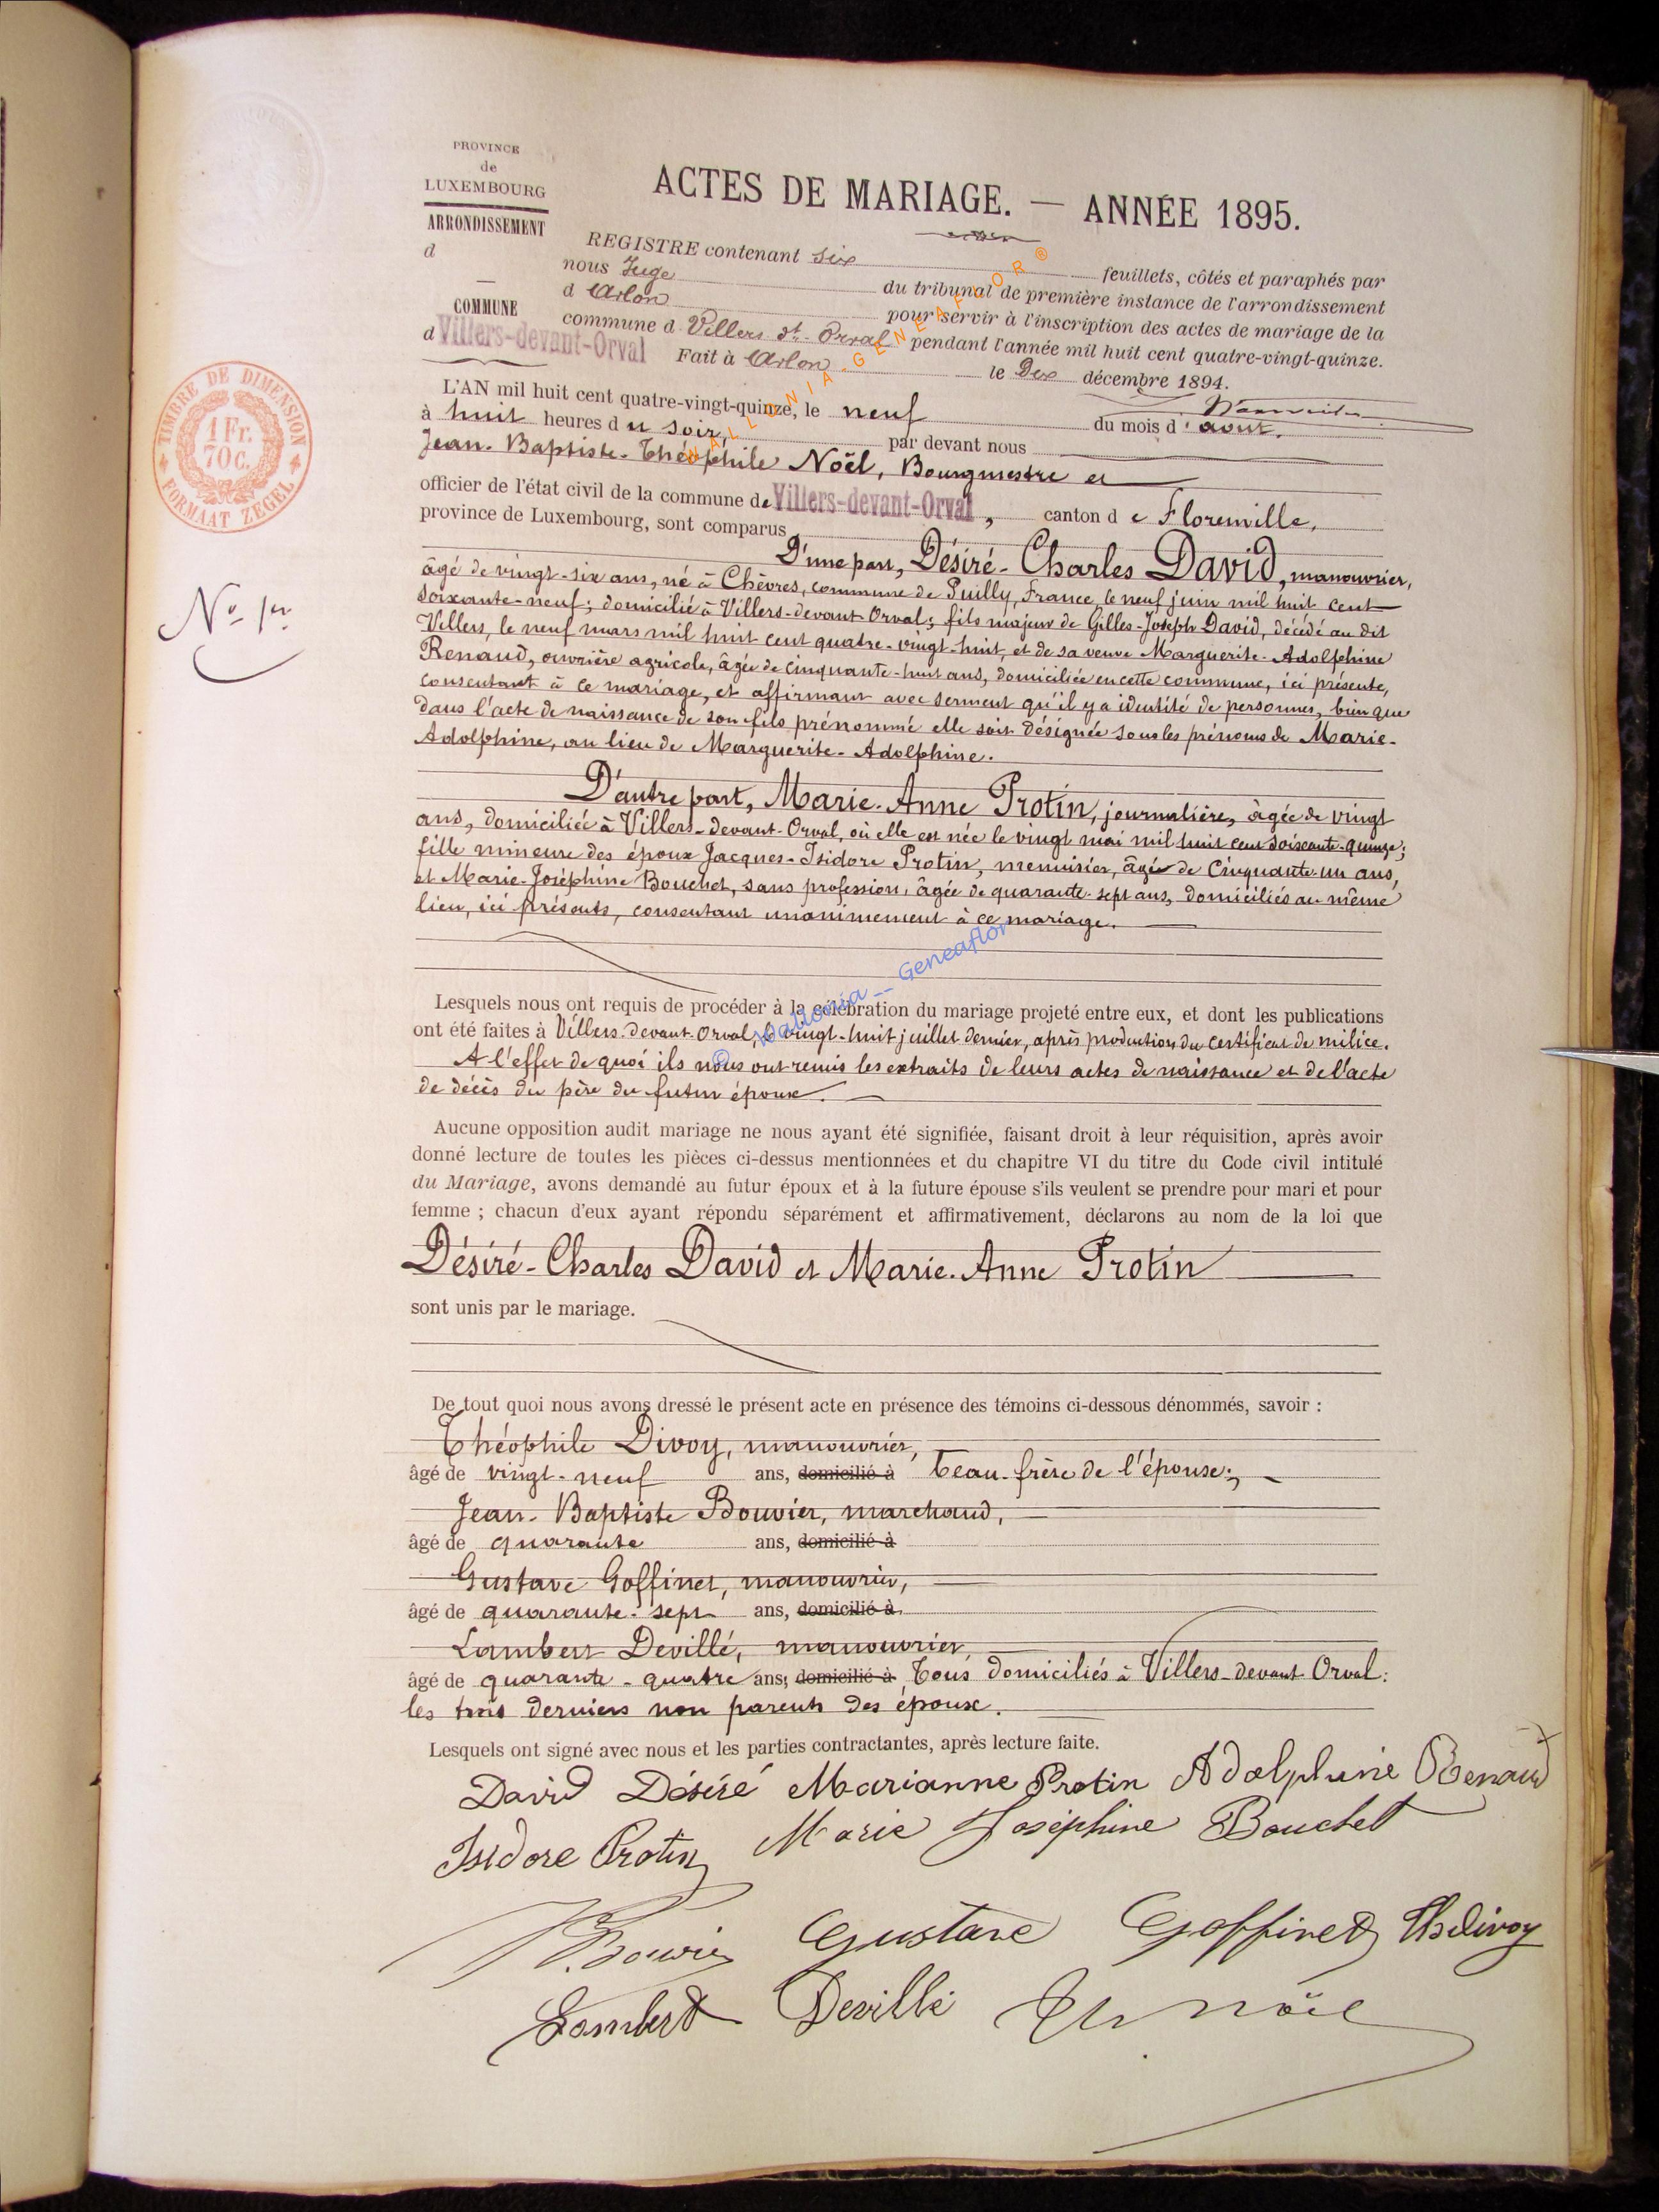 PROVINCE
de
LUXEMBOURG
ARRONDISSEMENT
d
COMMUNE
d Villers-devant-Orval
ACTES DE MARIAGE. — ANNÉE 1895.
REGISTRE contenant six feuillets, côtés et paraphés par
nous Juge du tribunal de première instance de l'arrondissement
d Arlon pour servir à l'inscription des actes de mariage de la
commune d Villers dt. Orval pendant l'année mil huit cent quatre-vingt-quinze.
Fait à Arlon le Dix décembre 1894.
TIMBRE DE DIMENSION
1 Fr.
70 C.
FORMAAT ZEGEL
No 1er
L'AN mil huit cent quatre-vingt-quinze, le neuf du mois d'août,
à huit heures du soir, par devant nous
Jean-Baptiste-Théophile Noël, Bourgmestre et
officier de l'état civil de la commune de Villers-devant-Orval, canton de Florenville,
province de Luxembourg, sont comparus
D'une part, Désiré-Charles David, manouvrier,
âgé de vingt-six ans, né à Chèvres, commune de Puilly, France, le neuf juin mil huit cent
soixante-neuf; domicilié à Villers-devant-Orval; fils majeur de Gilles-Joseph David, décédé au dit
Villers, le neuf mars mil huit cent quatre-vingt-huit, et de sa veuve Marguerite-Adolphine
Renaud, ouvrière agricole, âgée de cinquante-huit ans, domiciliée en cette commune, ici présente,
consentant à ce mariage, et affirmant avec serment qu'il y a identité de personnes, bien que
dans l'acte de naissance de son fils prénommé elle soit désignée sous les prénoms de Marie-
Adolphine, au lieu de Marguerite-Adolphine.
D'autre part, Marie-Anne Protin, journalière, âgée de vingt
ans, domiciliée à Villers-devant-Orval, où elle est née le vingt mai mil huit cent soixante-quinze;
fille mineure des époux Jacques-Isidore Protin, menuisier, âgé de cinquante-un ans,
et Marie-Joséphine Bouchet, sans profession, âgée de quarante-sept ans, domiciliés au même
lieu, ici présents, consentant unanimement à ce mariage.
Lesquels nous ont requis de procéder à la célébration du mariage projeté entre eux, et dont les publications
ont été faites à Villers-devant-Orval, le vingt-huit juillet dernier, après production du certificat de milice.
A l'effet de quoi ils nous ont remis les extraits de leurs actes de naissance et de l'acte
de décès du père du futur époux.
Aucune opposition audit mariage ne nous ayant été signifiée, faisant droit à leur réquisition, après avoir
donné lecture de toutes les pièces ci-dessus mentionnées et du chapitre VI du titre du Code civil intitulé
du Mariage, avons demandé au futur époux et à la future épouse s'ils veulent se prendre pour mari et pour
femme ; chacun d'eux ayant répondu séparément et affirmativement, déclarons au nom de la loi que
Désiré-Charles David et Marie-Anne Protin
sont unis par le mariage.
De tout quoi nous avons dressé le présent acte en présence des témoins ci-dessous dénommés, savoir :
Théophile Divoy, manouvrier,
âgé de vingt-neuf ans, domicilié à beau-frère de l'épouse;
Jean-Baptiste Bouvier, marchand,
âgé de quarante ans, domicilié à
Gustave Goffinet, manouvrier,
âgé de quarante-sept ans, domicilié à
Lambert Devillé, manouvrier,
âgé de quarante-quatre ans; domicilié à Tous domiciliés à Villers-devant-Orval:
les trois derniers non parents des époux.
Lesquels ont signé avec nous et les parties contractantes, après lecture faite.
David Désiré Marianne Protin Adolphine Renaud
Isidore Protin Marie Joséphine Bouchet
Gustave Goffinet Th divoy
Lambert Devillé Noël
WALLONIA-GENEAFLOR ®
© Wallonia -- Geneaflor